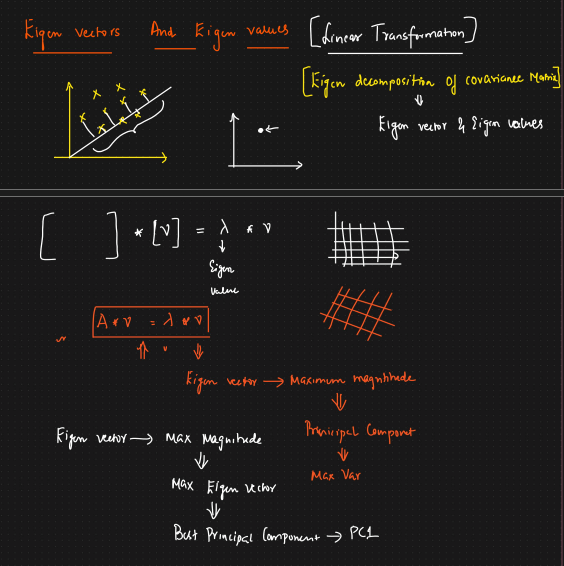 Eigen vectors And Eigen values [Linear Transformation]
[Eigen decomposition of covariance Matrix]
Eigen vector & Eigen values
[ ] * [v] = λ * v
Eigen
value
A * v = λ * v
Eigen vector → Maximum magnitude
Eigen vector → Max Magnitude
Principal Component
Max Var
Max Eigen vector
Best Principal Component → PC1